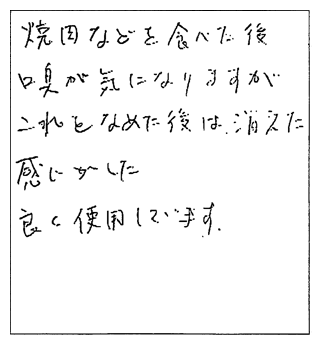 焼肉などを食べた後
口臭が気になりますが
これをなめた後は、消えた
感じがした
良く使用しています。